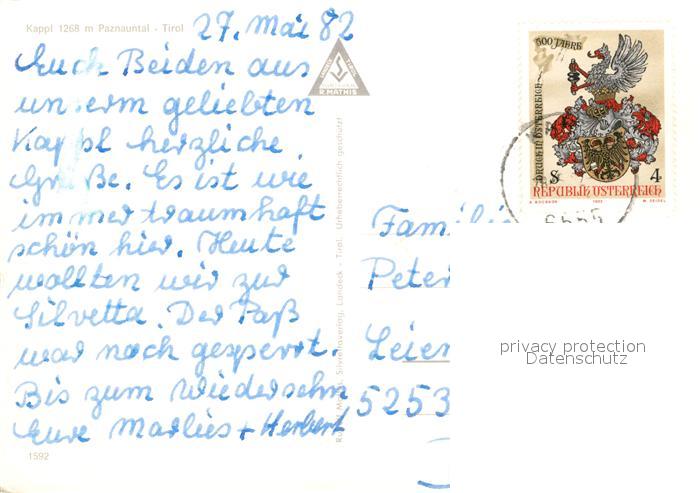 Kappl 1268 m Paznauntal - Tirol
27. Mai 82
Euch Beiden aus
unserm geliebten
Kappl herzliche
Grüße. Es ist wie
immer traumhaft
schön hier. Heute
wollten wir zur
Silvetta. Der Paß
war noch gesperrt.
Bis zum Wiedersehn
Eure Marlies + Herbert
1592
R. MATHIS
Silvrettaverlag, Landeck - Tirol. Urheberrechtlich geschützt
500 JAHRE
DRUCK IN ÖSTERREICH
S 4
REPUBLIK ÖSTERREICH
1982
6555
Familie
Peter
Leier
5253
privacy protection
Datenschutz